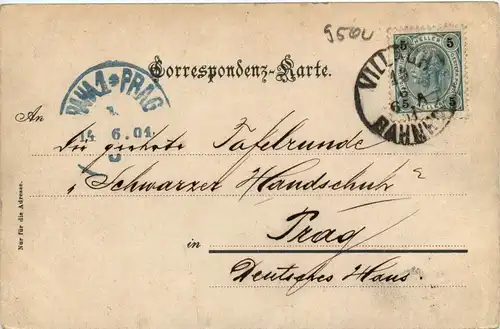 Correspondenz-Karte.
PRAHA 1 * PRAG
14 6.01
5 HELLER 5
VILLACH
BAHNHOF
An
Die geehrte Tafelrunde
„Schwarzer Handschuh“
in Prag
Deutsches Haus.
Nur für die Adresse.